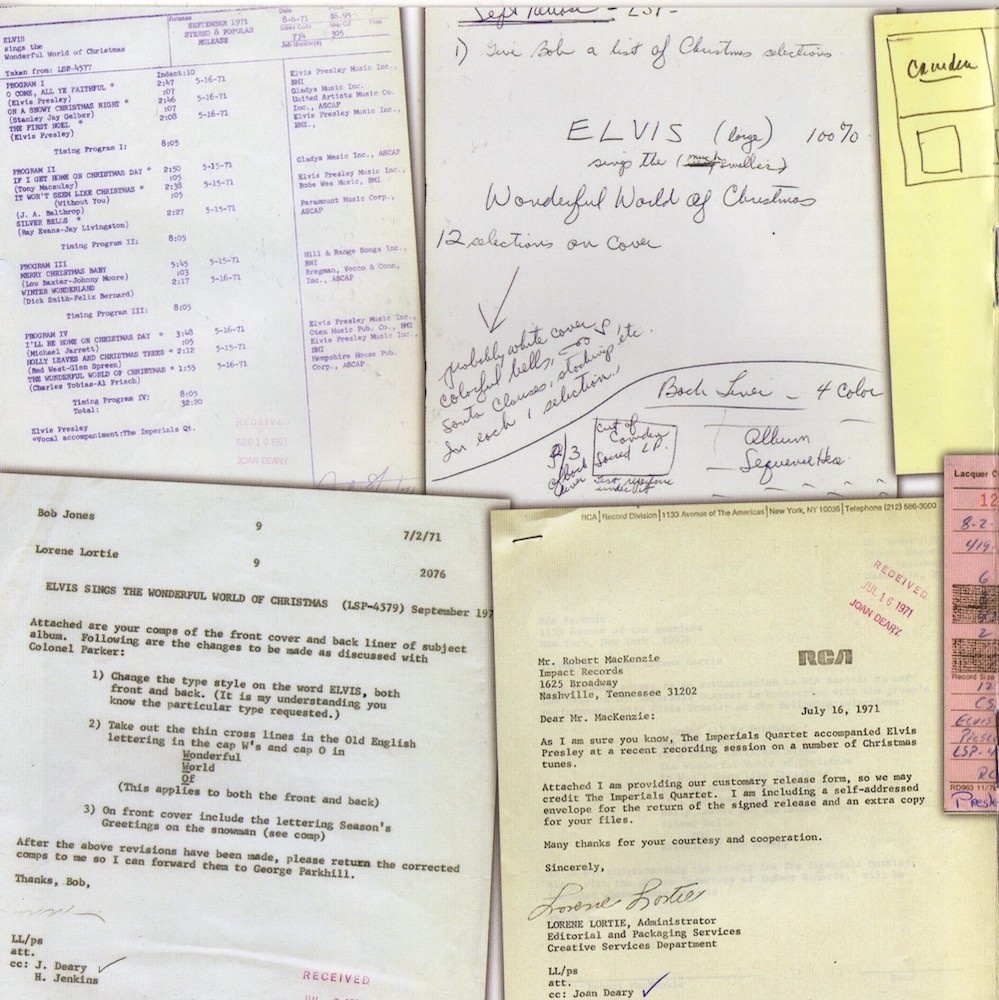 ELVIS
sings the
Wonderful World of Christmas
Release
SEPTEMBER 1971
STEREO 8 POPULAR
RELEASE
Date
8-6-71
$6.95
734
305
Taken from: LSP-4577
Indent:10
PROGRAM I
O COME, ALL YE FAITHFUL * 2:47 5-16-71
(Elvis Presley) :07
ON A SNOWY CHRISTMAS NIGHT * 2:46 5-16-71
(Stanley Jay Gelber) :07
THE FIRST NOEL * 2:08 5-16-71
(Elvis Presley)
Timing Program I: 8:05
Elvis Presley Music Inc.,
BMI
Gladys Music Inc.
United Artists Music Co.
Inc., ASCAP
Elvis Presley Music Inc.,
BMI.,
PROGRAM II
IF I GET HOME ON CHRISTMAS DAY * 2:50 5-15-71
(Tony Macaulay) :05
IT WON'T SEEM LIKE CHRISTMAS * 2:38 5-15-71
(Without You) :05
(J. A. Balthrop)
SILVER BELLS * 2:27 5-15-71
(Ray Evans-Jay Livingston)
Timing Program II: 8:05
Gladys Music Inc., ASCAP
Elvis Presley Music Inc.,
Bobe Wes Music, BMI
Paramount Music Corp.,
ASCAP
PROGRAM III
MERRY CHRISTMAS BABY 5:45 5-15-71
(Lou Baxter-Johnny Moore) :03
WINTER WONDERLAND 2:17 5-16-71
(Dick Smith-Felix Bernard)
Timing Program III: 8:05
Hill & Range Songs Inc.,
BMI
Bregman, Vocco & Conn,
Inc., ASCAP
PROGRAM IV
I'LL BE HOME ON CHRISTMAS DAY * 3:48 5-16-71
(Michael Jarrett) :05
HOLLY LEAVES AND CHRISTMAS TREES * 2:12 5-15-71
(Red West-Glen Spreen)
THE WONDERFUL WORLD OF CHRISTMAS * 1:55 5-16-71
(Charles Tobias-Al Frisch)
Timing Program IV: 8:05
Total: 32:20
Elvis Presley Music Inc.,
Oten Music Pub. Co., BMI
Elvis Presley Music Inc.,
BMI
Hampshire House Pub.
Corp., ASCAP
Elvis Presley
*Vocal accompaniment:The Imperials Qt.
RECEIVED
AUG 10 1971
JOAN DEARY
Sept Release - LSP-
1) Give Bob a list of Christmas selections
ELVIS (large) 100%
sings the (much smaller)
Wonderful World of Christmas
12 selections on cover
probably white cover &
colorful bells,
Santa Clauses, stocking, etc.
In each 1 selection.
Back Liner - 4 color
2/3 of back cover
cut of
Camden
Sacred LP.
under it
Album
Sequence
Camden
Bob Jones
9
7/2/71
Lorene Lortie
9
2076
ELVIS SINGS THE WONDERFUL WORLD OF CHRISTMAS (LSP-4579) September 197
Attached are your comps of the front cover and back liner of subject
album. Following are the changes to be made as discussed with
Colonel Parker:
1) Change the type style on the word ELVIS, both
front and back. (It is my understanding you
know the particular type requested.)
2) Take out the thin cross lines in the Old English
lettering in the cap W's and cap O in
Wonderful
World
Of
(This applies to both the front and back)
3) On front cover include the lettering Season's
Greetings on the snowman (see comp)
After the above revisions have been made, please return the corrected
comps to me so I can forward them to George Parkhill.
Thanks, Bob,
LL/ps
att.
cc: J. Deary
H. Jenkins
RECEIVED
RCA | Record Division | 1133 Avenue of The Americas | New York, NY 10036 | Telephone (212) 586-3000
RECEIVED
JUL 16 1971
JOAN DEARY
RCA
Mr. Robert MacKenzie
Impact Records
1625 Broadway
Nashville, Tennessee 31202
July 16, 1971
Dear Mr. MacKenzie:
As I am sure you know, The Imperials Quartet accompanied Elvis
Presley at a recent recording session on a number of Christmas
tunes.
Attached I am providing our customary release form, so we may
credit The Imperials Quartet. I am including a self-addressed
envelope for the return of the signed release and an extra copy
for your files.
Many thanks for your courtesy and cooperation.
Sincerely,
Lorene Lortie
LORENE LORTIE, Administrator
Editorial and Packaging Services
Creative Services Department
LL/ps
att.
cc: Joan Deary
Lacquer
12
8-2-
419
6
2
Record Size
12
CS
Elvis
LSP-4
RC
RD963 11/7
Presl